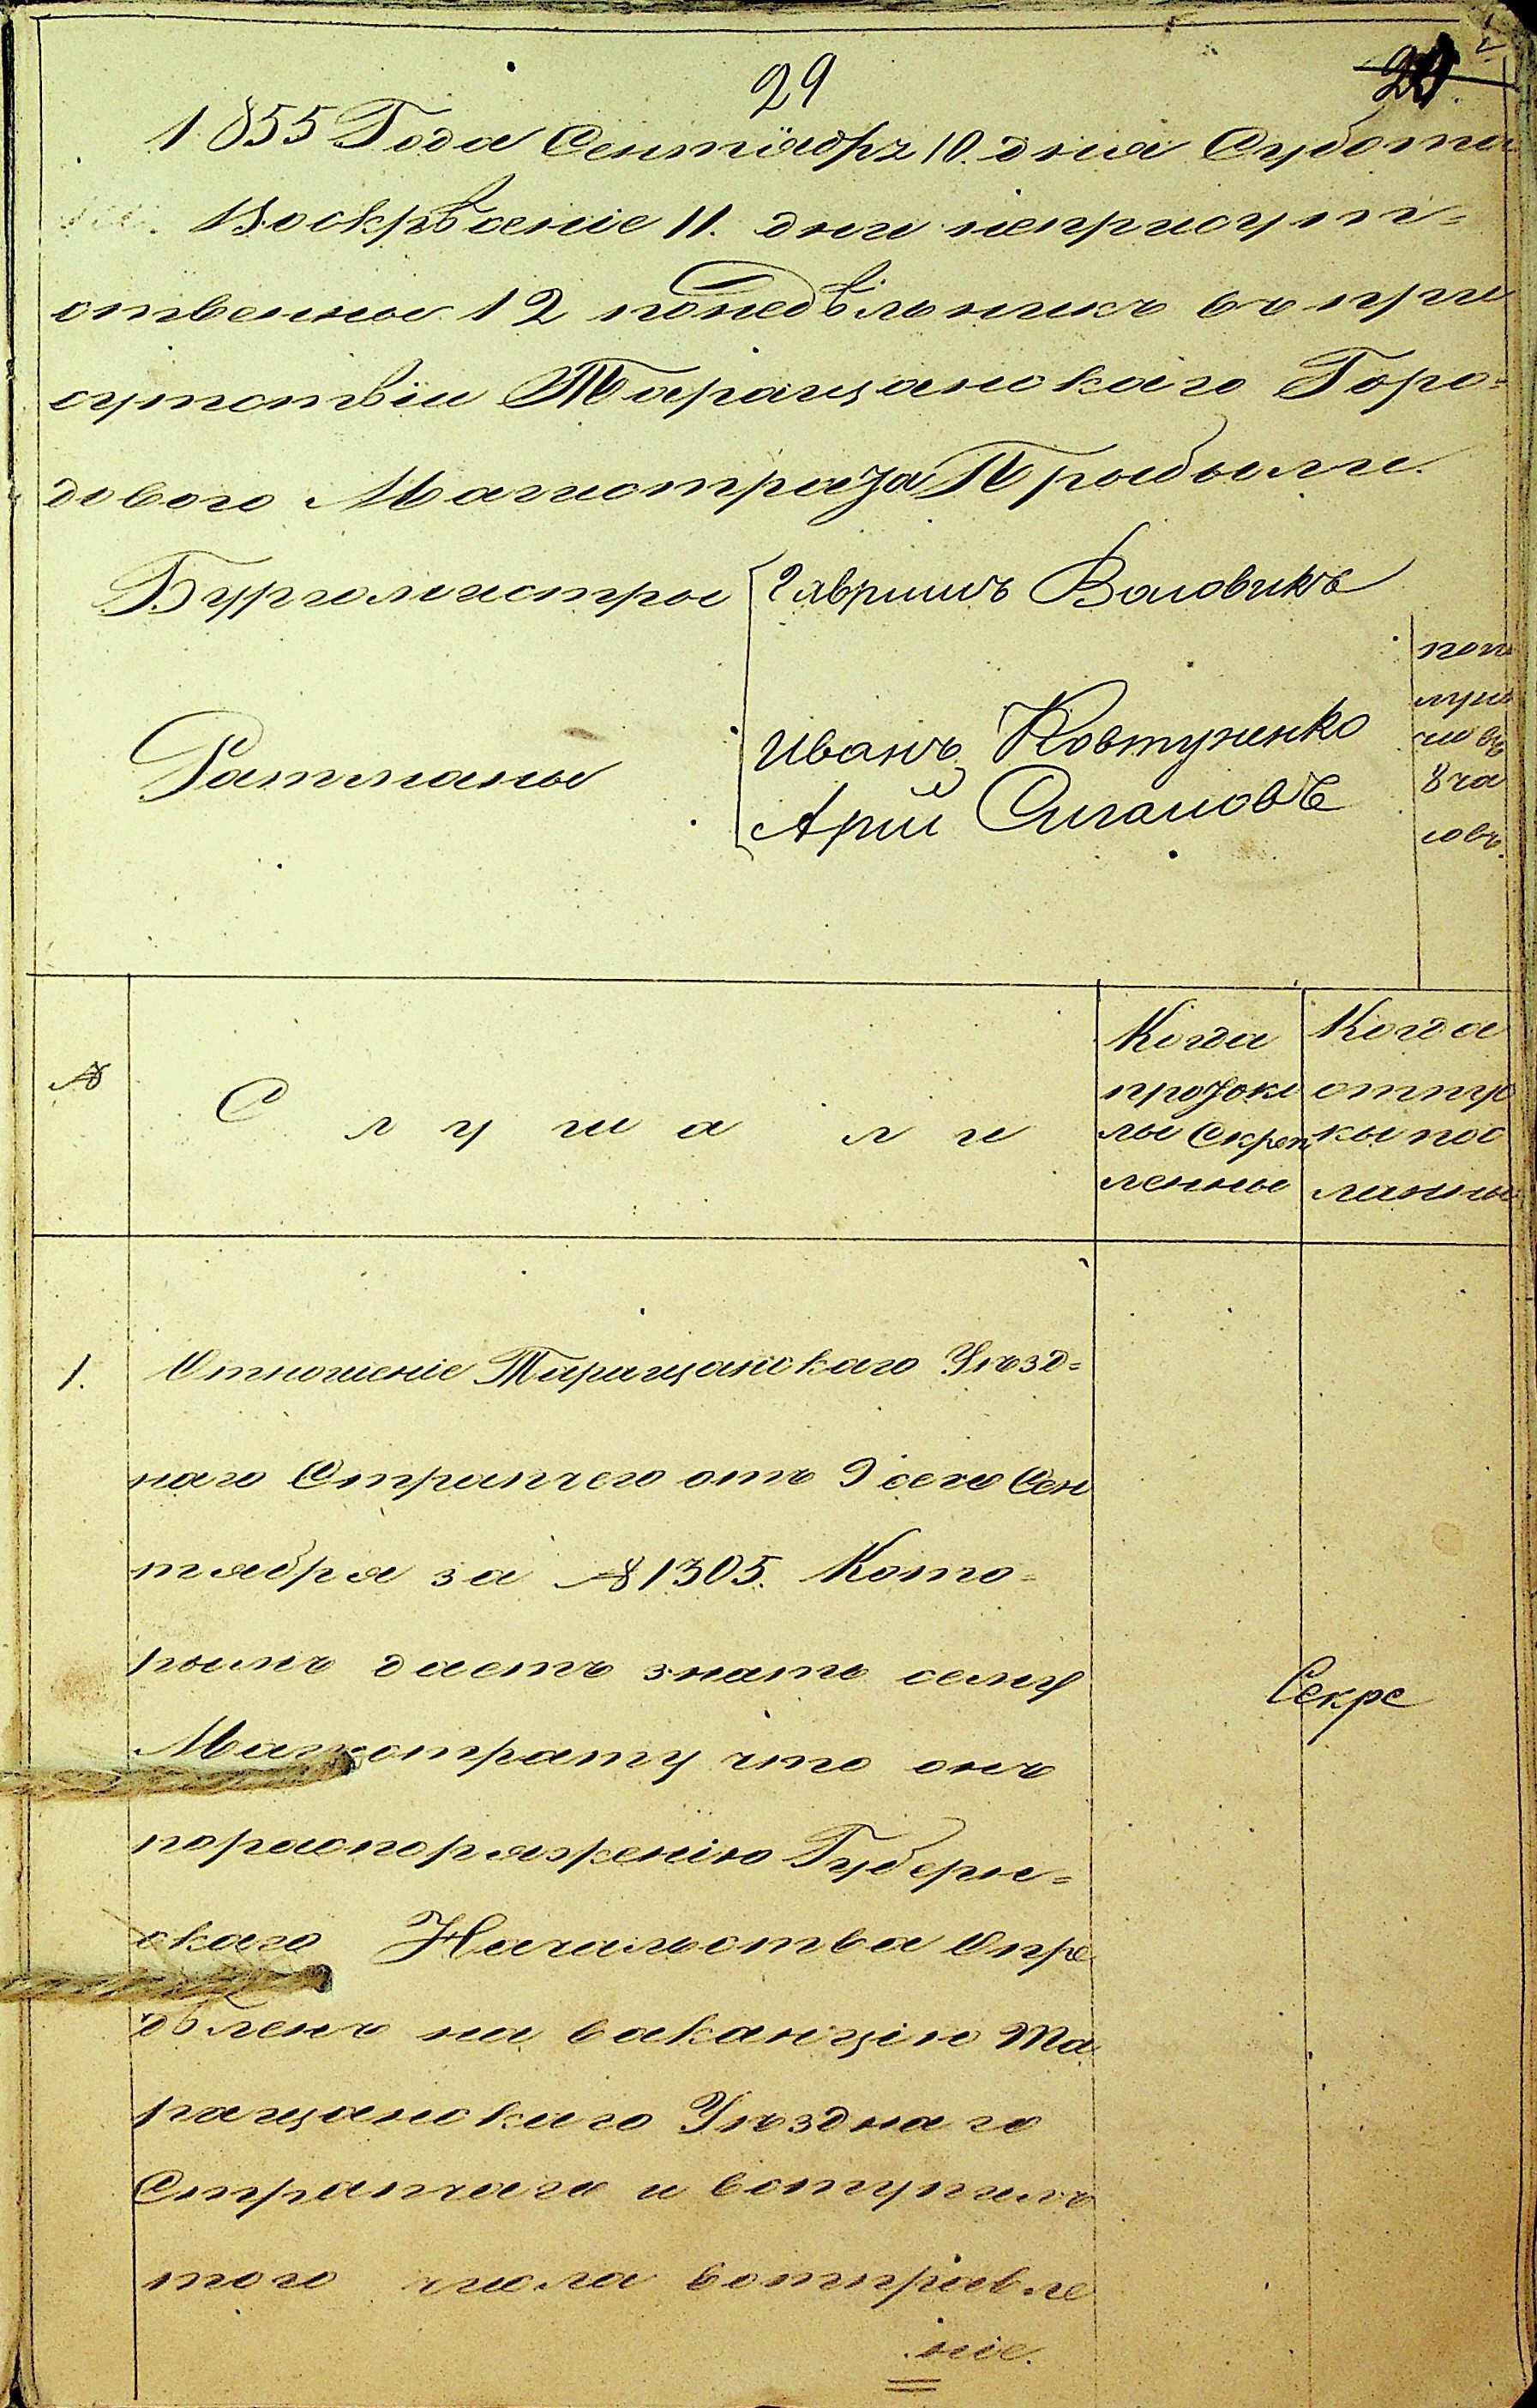 29
1855 Года Сентября 10. дня Субота
Воскрѣсение 11. дни неприсут=
ственные 12 понедѣльникъ въ при
сутствіи Таращанскаго Горо=
доваго Магистрата Прыбыли
Бургомистры Гаврыилъ Воловикъ
Ратманы
Иванъ Ковтуненко
Арій Сигаловъ
попо
луно
чи въ
8 ча
совъ.
№
Слушали
Когда
протоко
лы Скреп
ленные
Когда
отпус
кы пос
ланны
1. Отношеніе Таращанскаго Уѣзд=
наго Стряпчего отъ 9 сего Сен
тября за № 1305. Кото=
рымъ даетъ знать сему
Магистрату что онъ
пораспоряженію Губерн=
скаго Начальства Опре
дѣленъ на ваканцію Та
ращанскаго Уѣзднаго
Стряпчаго и вступилъ
того числа вотправле
ніе.
Секре